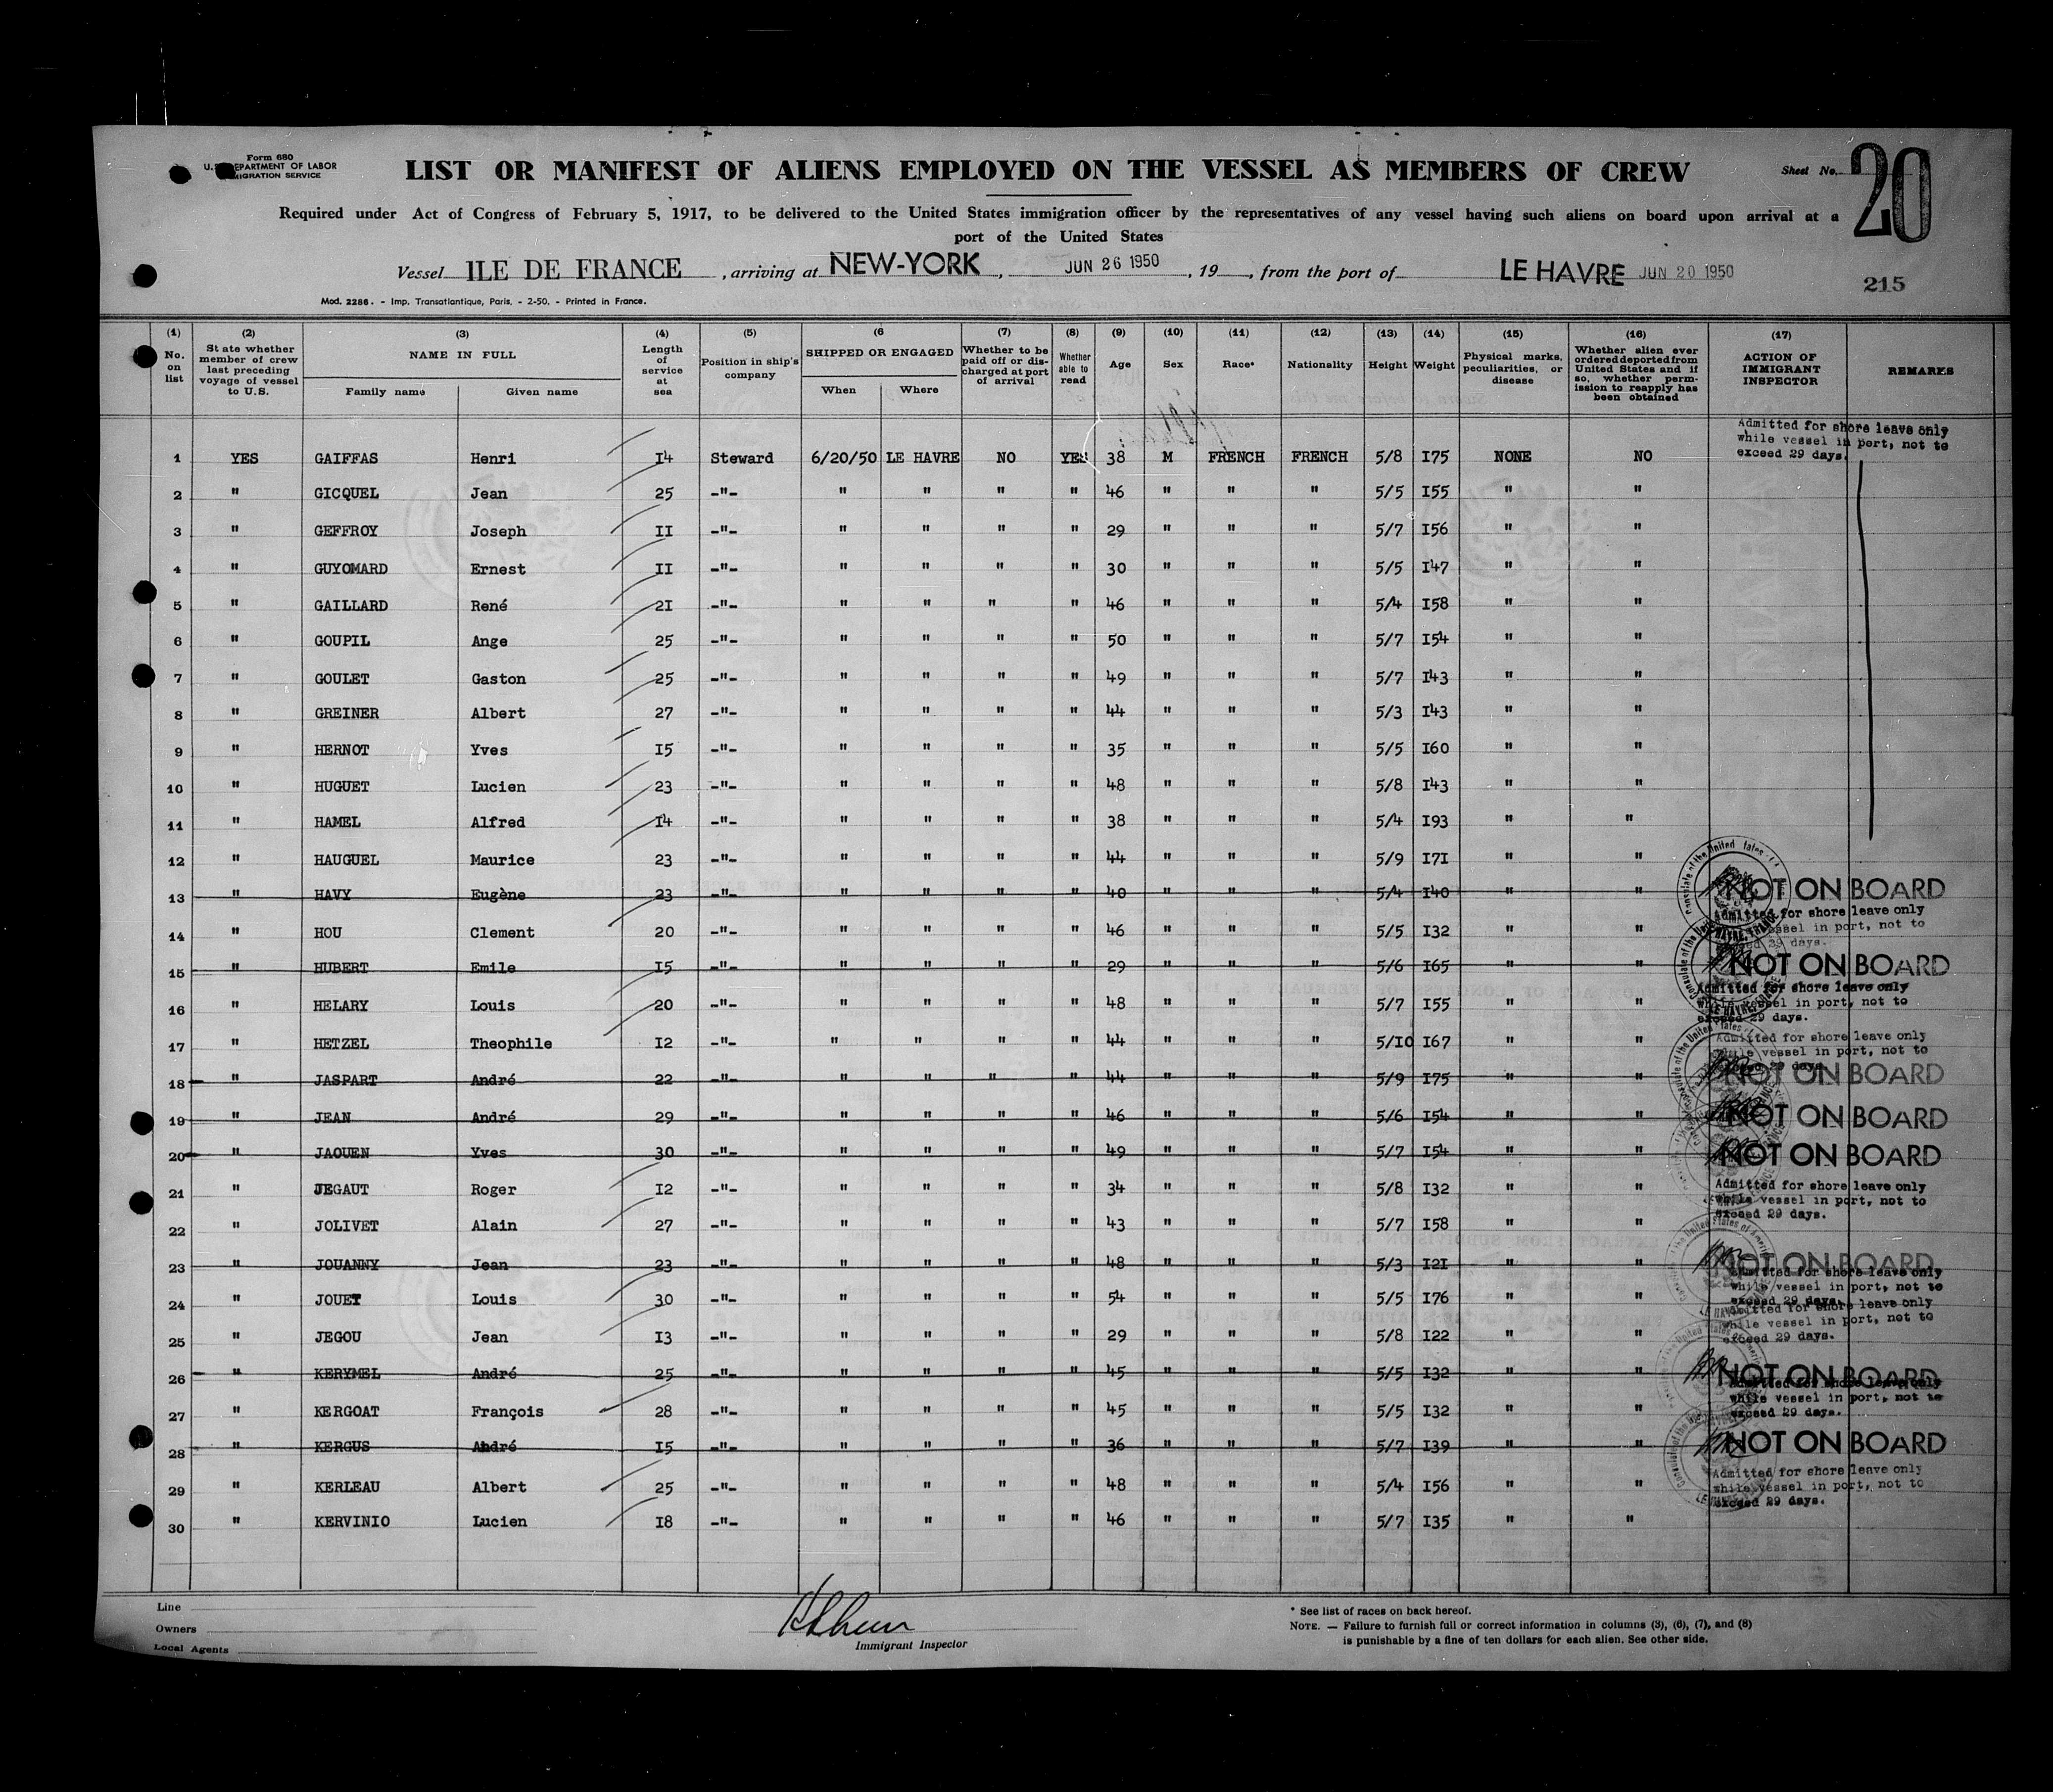 Form 680
U.S. DEPARTMENT OF LABOR
IMMIGRATION SERVICE
LIST OR MANIFEST OF ALIENS EMPLOYED ON THE VESSEL AS MEMBERS OF CREW
Sheet No. 20
Required under Act of Congress of February 5, 1917, to be delivered to the United States immigration officer by the representatives of any vessel having such aliens on board upon arrival at a
port of the United States
Vessel ILE DE FRANCE, arriving at NEW-YORK, JUN 26 1950, 19 , from the port of LE HAVRE JUN 20 1950
215
Mod. 2286. - Imp. Transatlantique, Paris. - 2-50. - Printed in France.
(1) No. on list (2) State whether member of crew last preceding voyage of vessel to U.S. (3) NAME IN FULL Family name Given name (4) Length of service at sea (5) Position in ship's company (6 SHIPPED OR ENGAGED When Where (7) Whether to be paid off or discharged at port of arrival (8) Whether able to read (9) Age (10) Sex (11) Race* (12) Nationality (13) Height (14) Weight (15) Physical marks, peculiarities, or disease (16) Whether alien ever ordered deported from United States and if so, whether permission to reapply has been obtained (17) ACTION OF IMMIGRANT INSPECTOR REMARKS
Admitted for shore leave only
while vessel in port, not to
exceed 29 days.
1 YES GAIFFAS Henri I4 Steward 6/20/50 LE HAVRE NO YES 38 M FRENCH FRENCH 5/8 I75 NONE NO
2 " GICQUEL Jean 25 -"- " " " " 46 " " " 5/5 I55 " "
3 " GEFFROY Joseph II -"- " " " " 29 " " " 5/7 I56 " "
4 " GUYOMARD Ernest II -"- " " " " 30 " " " 5/5 I47 " "
5 " GAILLARD René 2I -"- " " " " 46 " " " 5/4 I58 " "
6 " GOUPIL Ange 25 -"- " " " " 50 " " " 5/7 I54 " "
7 " GOULET Gaston 25 -"- " " " " 49 " " " 5/7 I43 " "
8 " GREINER Albert 27 -"- " " " " 44 " " " 5/3 I43 " "
9 " HERNOT Yves I5 -"- " " " " 35 " " " 5/5 I60 " "
10 " HUGUET Lucien 23 -"- " " " " 48 " " " 5/8 I43 " "
11 " HAMEL Alfred I4 -"- " " " " 38 " " " 5/4 I93 " "
12 " HAUGUEL Maurice 23 -"- " " " " 44 " " " 5/9 I7I " "
13 " HAVY Eugène 23 -"- " " " " 40 " " " 5/4 I40 " " NOT ON BOARD
Admitted for shore leave only
14 " HOU Clement 20 -"- " " " " 46 " " " 5/5 I32 " " vessel in port, not to
exceed 29 days.
15 " HUBERT Emile I5 -"- " " " " 29 " " " 5/6 I65 " " NOT ON BOARD
Admitted for shore leave only
16 " HELARY Louis 20 -"- " " " " 48 " " " 5/7 I55 " " while vessel in port, not to
exceed 29 days.
17 " HETZEL Theophile I2 -"- " " " " 44 " " " 5/10 I67 " " Admitted for shore leave only
while vessel in port, not to
exceed 29 days.
18 " JASPART André 22 -"- " " " " 44 " " " 5/9 I75 " " NOT ON BOARD
19 " JEAN André 29 -"- " " " " 46 " " " 5/6 I54 " " NOT ON BOARD
20 " JAOUEN Yves 30 -"- " " " " 49 " " " 5/7 I54 " " NOT ON BOARD
21 " JEGAUT Roger I2 -"- " " " " 34 " " " 5/8 I32 " " Admitted for shore leave only
while vessel in port, not to
exceed 29 days.
22 " JOLIVET Alain 27 -"- " " " " 43 " " " 5/7 I58 " "
23 " JOUANNY Jean 23 -"- " " " " 48 " " " 5/3 I2I " " NOT ON BOARD
Admitted for shore leave only
while vessel in port, not to
exceed 29 days.
24 " JOUET Louis 30 -"- " " " " 54 " " " 5/5 I76 " "
Admitted for shore leave only
while vessel in port, not to
exceed 29 days.
25 " JEGOU Jean I3 -"- " " " " 29 " " " 5/8 I22 " "
26 " KERYMEL André 25 -"- " " " " 45 " " " 5/5 I32 " " NOT ON BOARD
Admitted for shore leave only
while vessel in port, not to
exceed 29 days.
27 " KERGOAT François 28 -"- " " " " 45 " " " 5/5 I32 " "
28 " KERGUS André I5 -"- " " " " 36 " " " 5/7 I39 " " NOT ON BOARD
Admitted for shore leave only
while vessel in port, not to
exceed 29 days.
29 " KERLEAU Albert 25 -"- " " " " 48 " " " 5/4 I56 " "
30 " KERVINIO Lucien I8 -"- " " " " 46 " " " 5/7 I35 " "
Line
Owners
Local Agents
Immigrant Inspector
* See list of races on back hereof.
NOTE. — Failure to furnish full or correct information in columns (3), (6), (7), and (8)
is punishable by a fine of ten dollars for each alien. See other side.